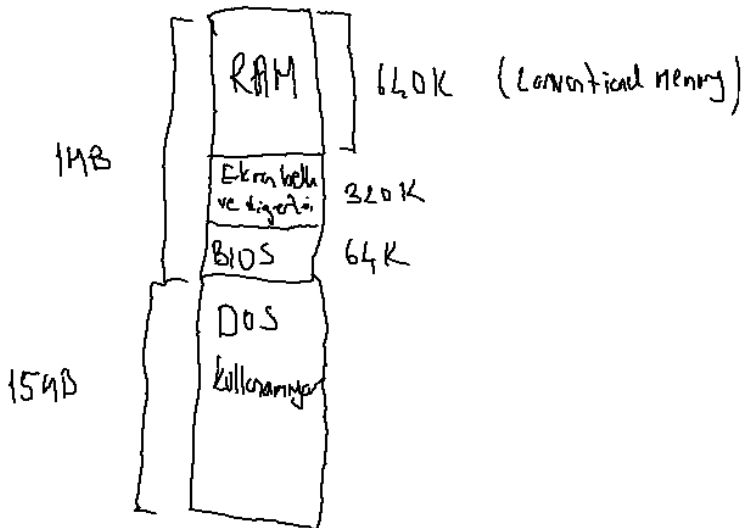 RAM
640K (Conventional Memory)
1MB
Ekran belleği
ve diğerleri
320K
BIOS
64K
DOS
kullanamıyor
15MB